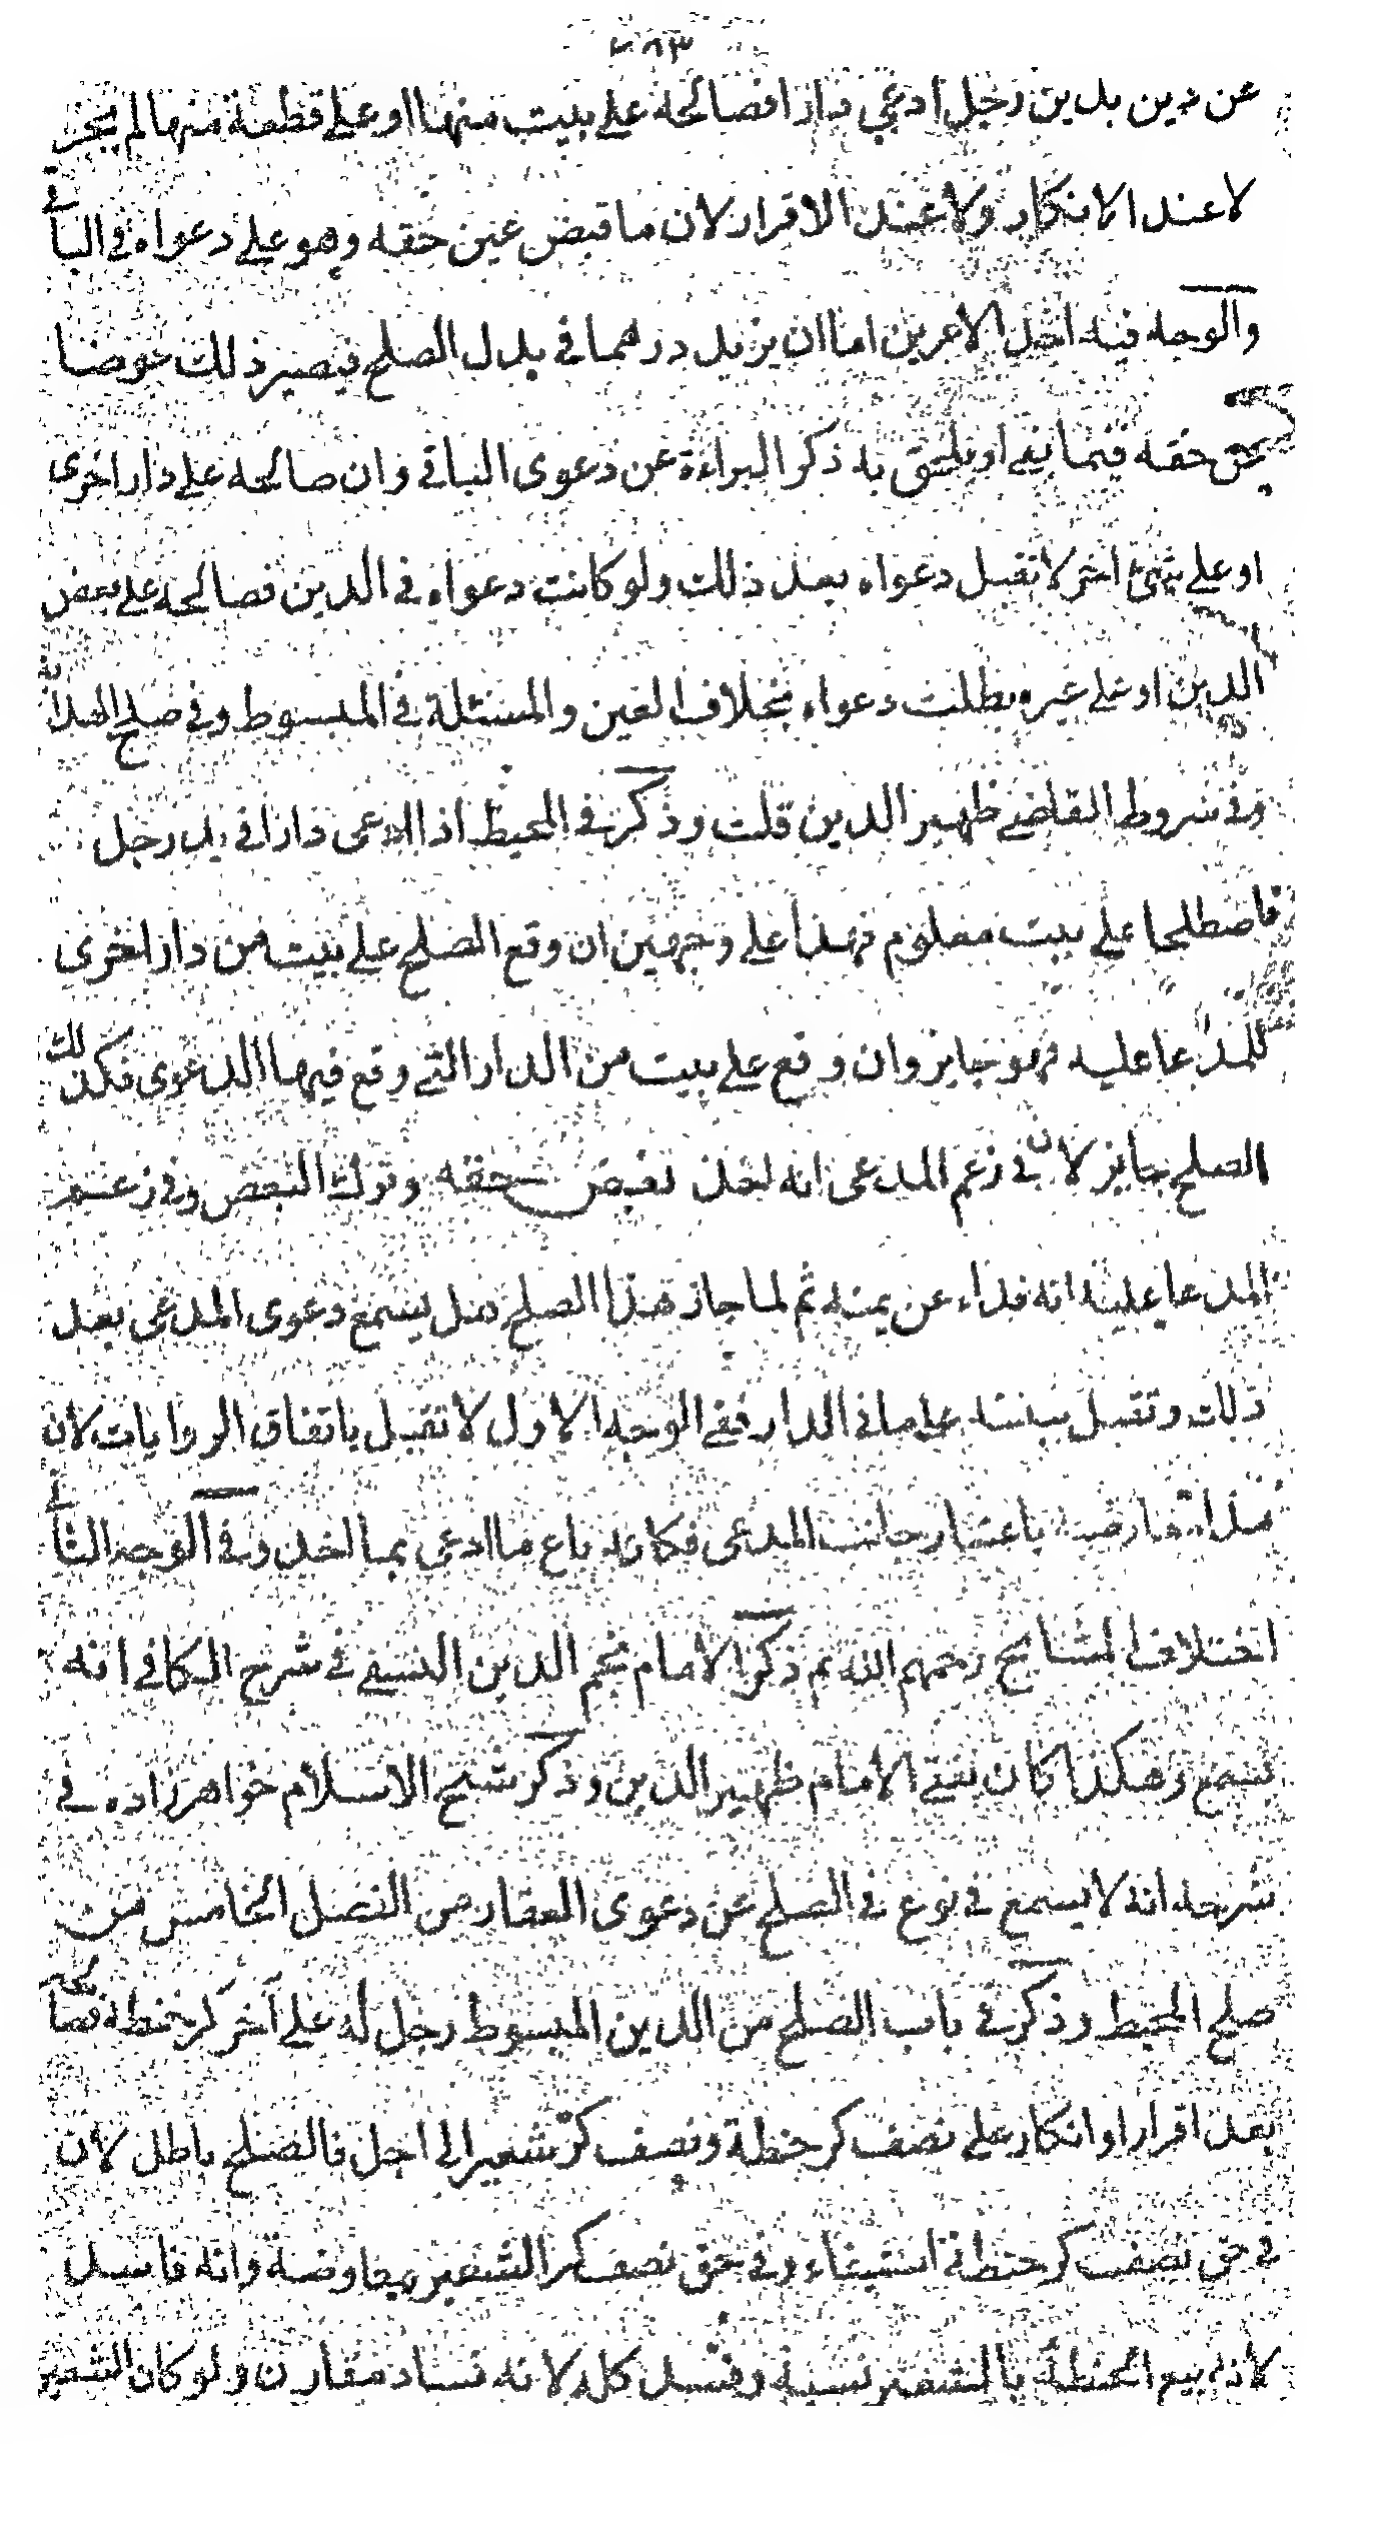 عن دين بدين رجل ادعى دارا فصالحه على بيت منها او على قطعة منها لم يجز
لا عند الانكار ولا عند الاقرار لان ما قبض عين حقه وهو على دعواه في الباقي
والوجه فيه احد الامرين اما ان يزيد درهما في بدل الصلح فيصير ذلك عوضا
عن حقه فيما بقي او يلحق به ذكر البراءة عن دعوى الباقي وان صالحه على دار اخرى
او على شيئ اخر لا تقبل دعواه بعد ذلك ولو كانت دعواه في الدين فصالحه على بعض
الدين او على غيره بطلت دعواه بخلاف العين والمسئلة في المبسوط وفي صلح الهداية
وفي شروط القاضي ظهير الدين قلت وذكر في المحيط اذا ادعى دارا في يد رجل
فاصطلحا على بيت معلوم فهذا على وجهين ان وقع الصلح على بيت من دار اخرى
للمدعا عليه فهو جايز وان وقع على بيت من الدار التي وقع فيها الدعوى فكذلك
الصلح جايز لان في زعم المدعى انه اخذ بعض حقه وترك البعض وفي زعم
المدعا عليه انه فداء عن يمينه ثم لما جاز هذا الصلح هل يسمع دعوى المدعى بعد
ذلك وتقبل بينته على ما في الدار ففي الوجه الاول لا تقبل باتفاق الروايات لان
هذا معارضة باعتبار جانب المدعى فكانه باع ما ادعى بما اخذ وفي الوجه الثاني
اختلاف المشايخ رحمهم الله ثم ذكر الامام نجم الدين النسفي في شرح الكافي انه
تسمع وهكذا كان يفتي الامام ظهير الدين وذكر شيخ الاسلام خواهر زاده في
شرحه انه لا يسمع في نوع في الصلح عن دعوى العقار من الفصل الخامس من
صلح المحيط وذكر في باب الصلح من الدين المبسوط رجل له على آخر كر حنطة فصالحه
بعد اقرار او انكار على نصف كر حنطة ونصف كر شعير الى اجل فالصلح باطل لان
في حق نصف كر حنطة استيفاء وفي حق نصف كر الشعير معاوضة وانه فاسد
لانه بيع الحنطة بالشعير نسية وفسد كله لانه فساد مقارن ولو كان الشعير